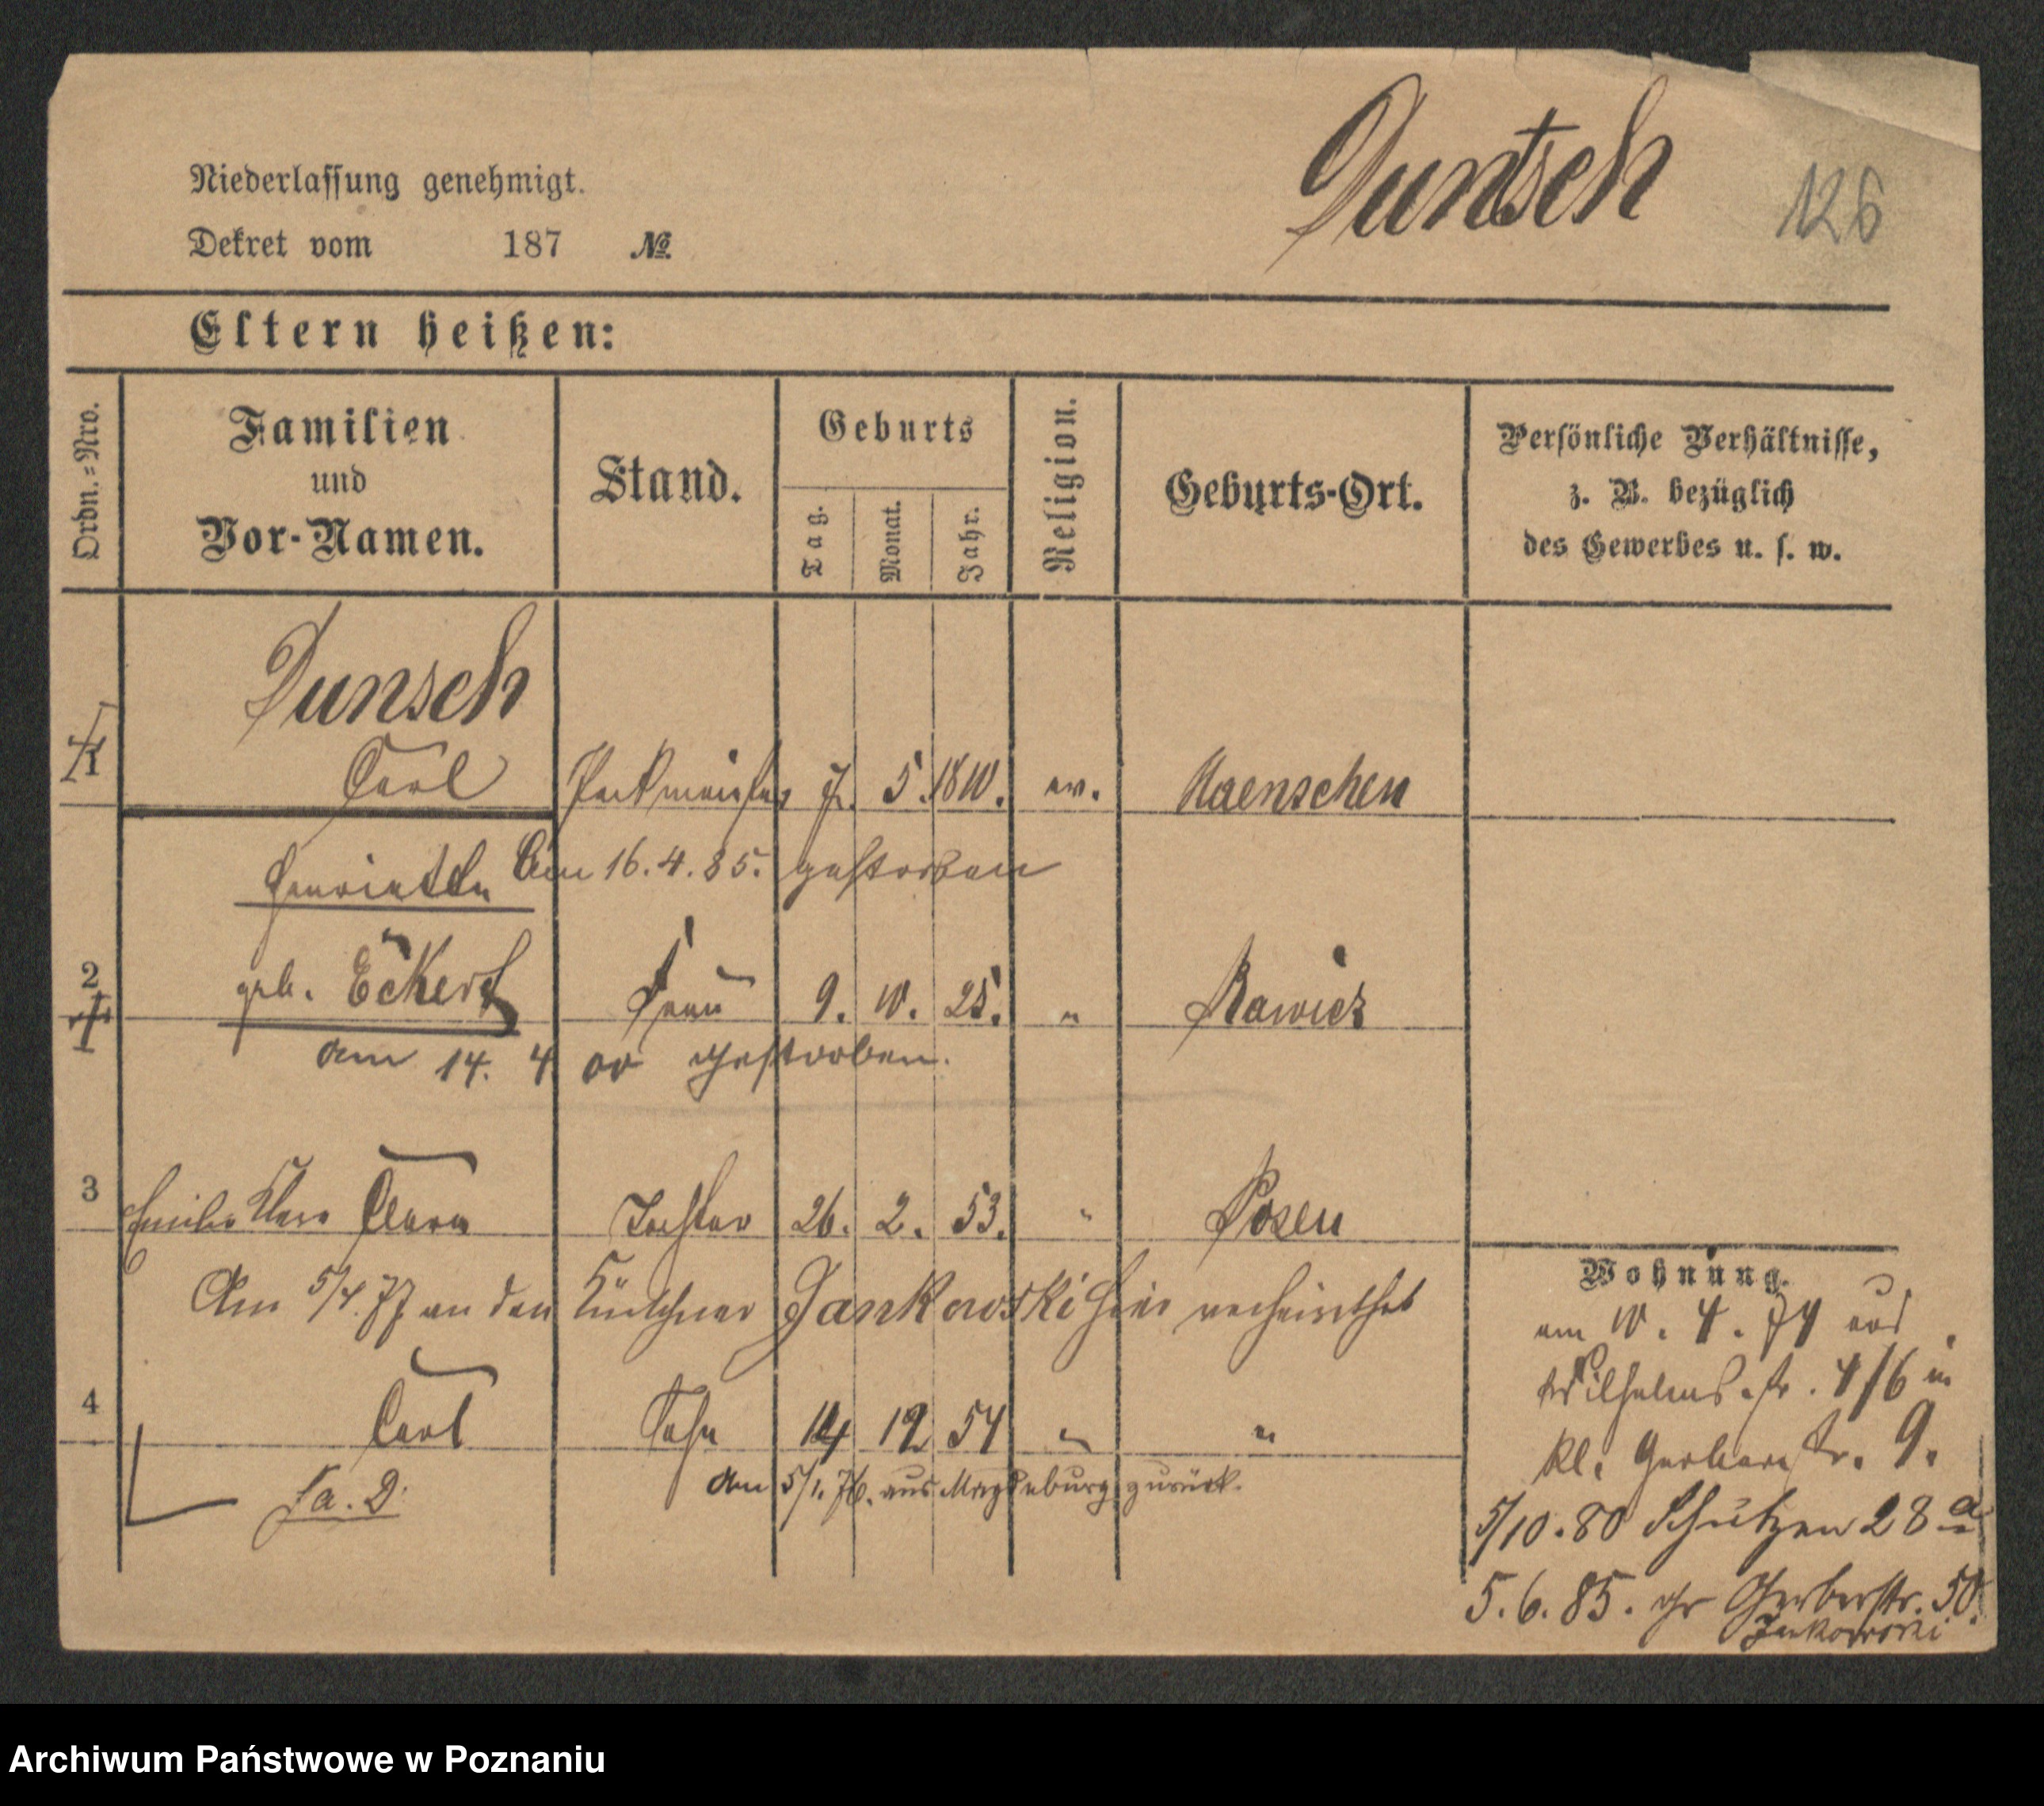 Duntsch 126
Niederlassung genehmigt.
Dekret vom 187 №
Eltern heißen:
Ordn.=Nro.
Familien
und
Vor-Namen.
Stand.
Geburts
Tag.
Monat.
Jahr.
Religion.
Geburts-Ort.
Persönliche Verhältnisse,
z. B. bezüglich
des Gewerbes u. s. w.
Dunsch
1 Carl Packmeister 7. 5. 1810. ev. Kaenschen
Henriette Am 16.4.85. gestorben
2 geb. Eckert Frau 9. 10. 25. " Rawicz
am 14. 4 00 gestorben.
3 Emilie Clara Clara Tochter 26. 2. 53. " Posen
Am 5/4. 77 an den Kürschner Jankowski hier verheirathet
4 Carl Sohn 14 12 54 " "
Am 5/1. 76. aus Magdeburg zurück.
Fa. D.
Wohnung.
am 10. 4. 74 aus
Wilhelmsstr. 4/6 in
kl. Gerberstr. 9.
5/10.80 Schützen 28 a
5.6.85. gr Gerberstr. 50.
Jankowski
Archiwum Państwowe w Poznaniu